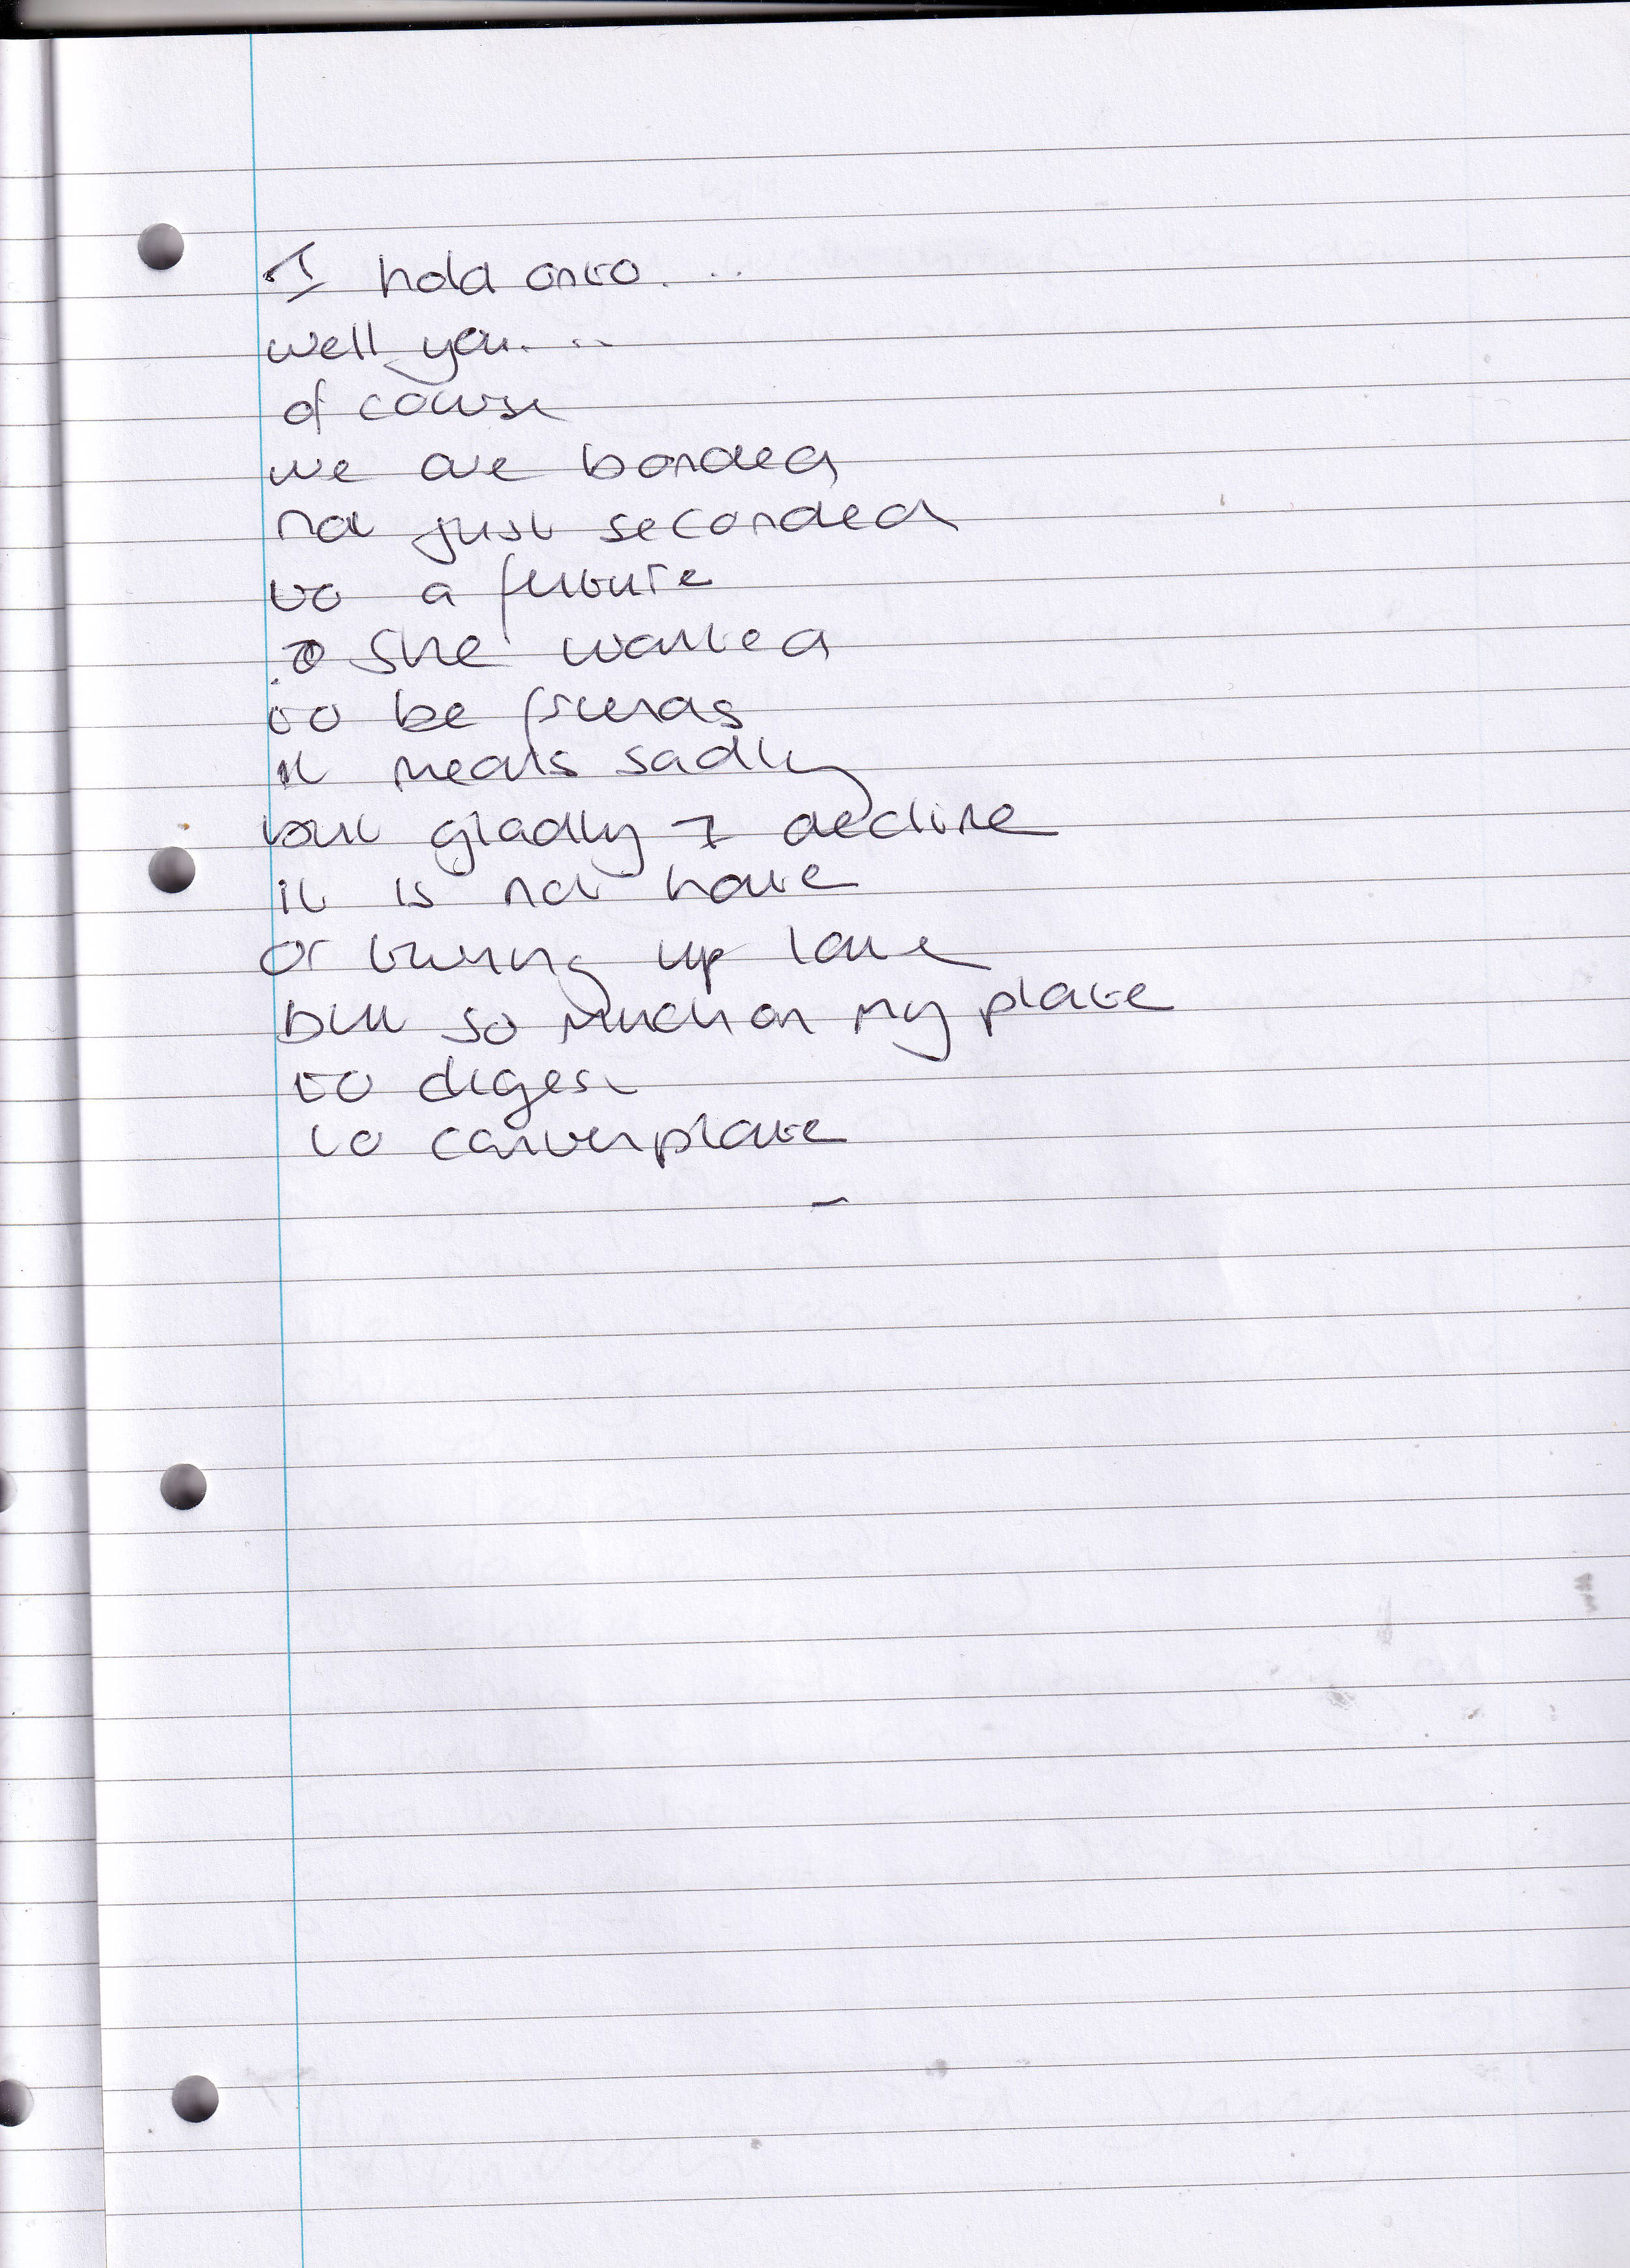 I hold onto...
well you...
of course
we are bonded
not just seconded
to a future
She wanted
to be friends
it means sadly
but gladly I decline
it is not hate
or turning up late
but so much on my plate
to digest
to contemplate